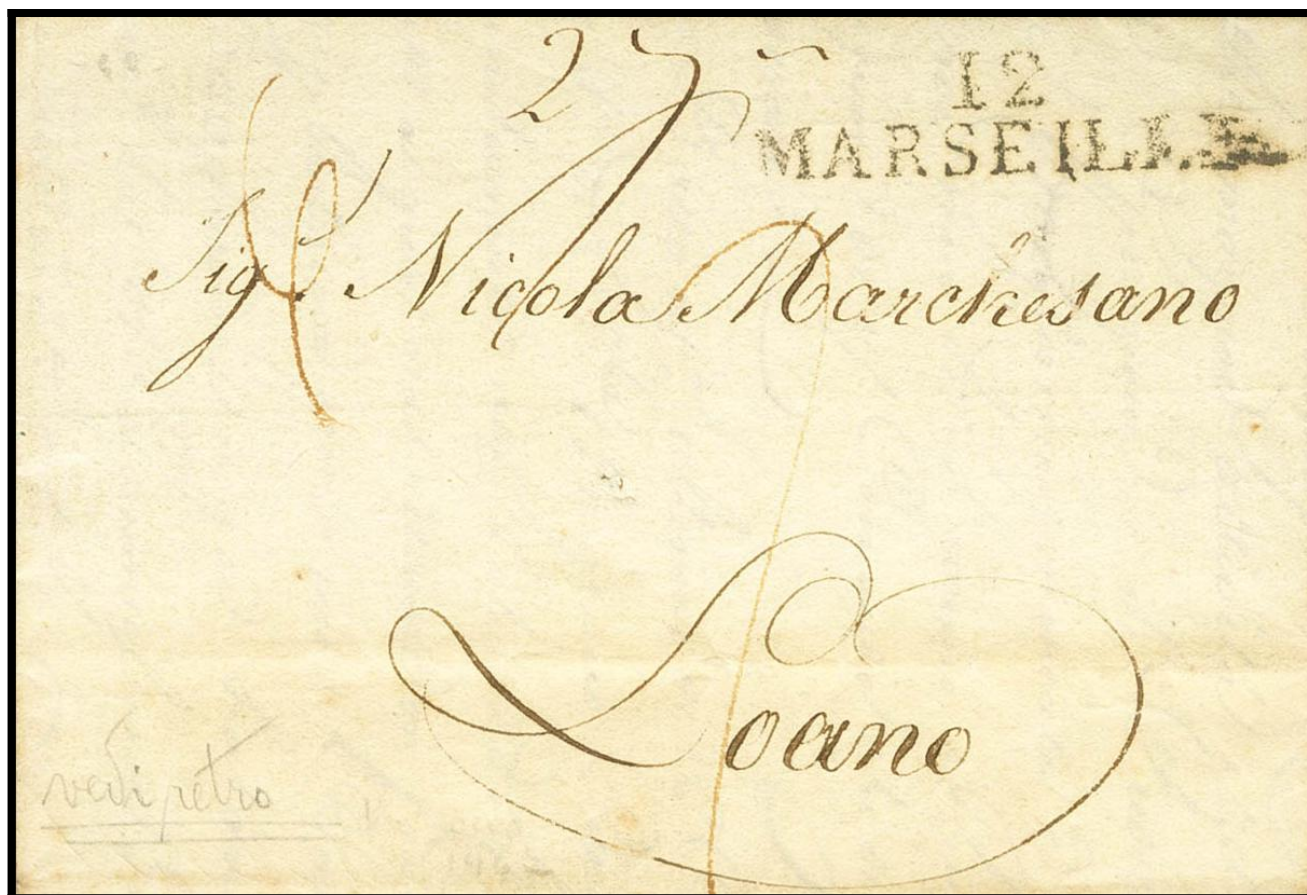 12
MARSEILLE
Sig.r Nicola Marchesano
Loano
vedi retro